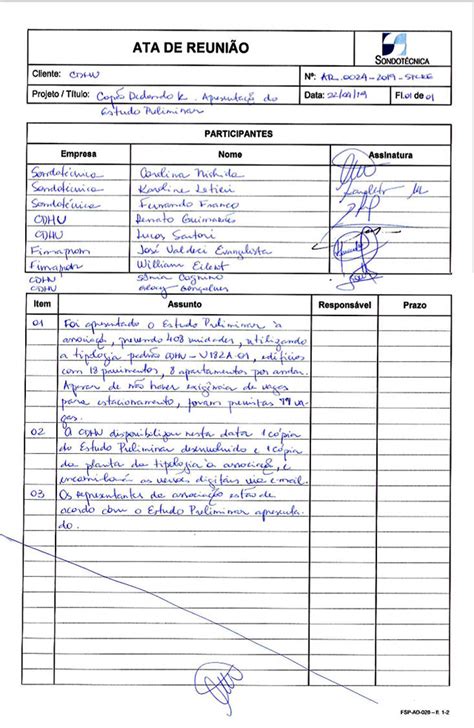 ATA DE REUNIÃO
SONDOTÉCNICA
Cliente: CDHU
Nº: AR.0024-2019-
Projeto / Título: Copós Redondo K. Apresentação do
Estudo Preliminar
Data: 22/07/19
Fl. 01 de 01
PARTICIPANTES
Empresa Nome Assinatura
Sondotécnica Carolina Nishida
Sondotécnica Karoline
Sondotécnica Fernando Franco
CDHU Renato Guimarães
CDHU Lucas Sartori
José Valdeci Evangelista
William
CDHU Sônia
CDHU Gonçalves
Item Assunto Responsável Prazo
01 Foi apresentado o Estudo Preliminar à
associaç, prevendo 408 unidades, utilizando
a tipologia padrão CDHU - V182A-01, edifícios
com 18 pavimentos, 8 apartamentos por andar.
Apesar de não haver exigência de vagas
para estacionamento, foram previstas 99 va-
gas.
02 A CDHU disponibilizou nesta data 1 cópia
do Estudo Preliminar desenvolvido e 1 cópia
da planta da tipologia à associação, e
encaminhará as versões digitais via e-mail.
03 Os representantes da associação estão de
acordo com o Estudo Preliminar apresenta-
do.
FSP-AO-020 – R. 1-2